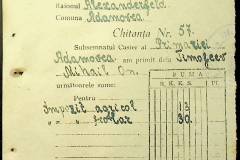 Raionul Alexanderfeld
Comuna Adamovca
Chitanța Nr. 57.
Subsemnatul Casier al Primariei
Adamovca am primit dela Timofeev
Mihail On.
următoarele sume:
SUMA
R.K.K.S. R.
Pentru
Impozit agricol 13
" " școlar 30